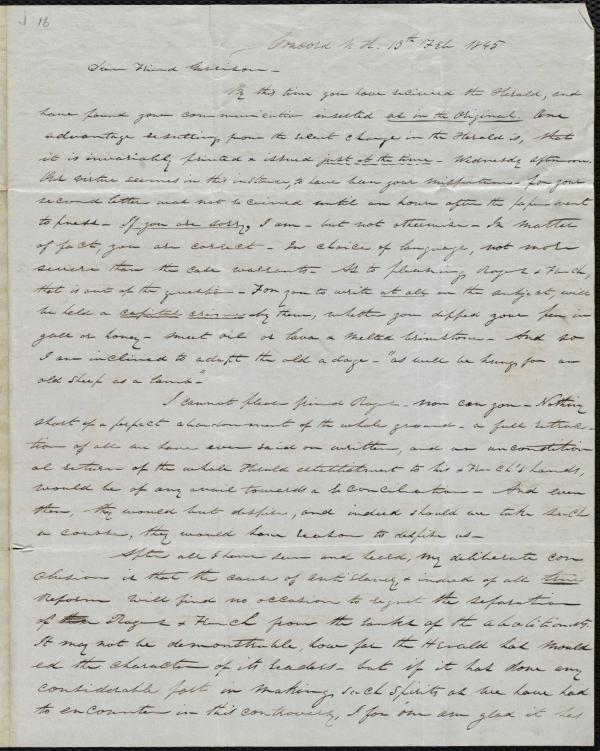 16
Concord N. H. 13th Feb 1845
Dear Friend Garrison -
By this time you have received the Herald, and
have found your communication inserted as in the Original. One
advantage resulting from the recent change in the Herald is, that
it is invariably printed & issued just at the time - Wednesday afternoon.
Our virtue seemes in this instance, to have been your misfortune - for your
second letter was not received until an hour after the paper went
to press - If you are sorry, I am - but not otherwise - In matter
of fact, you are correct - In choice of language, not more
severe than the case warrants - As to pleasing Rogers & French,
that is out of the question - For you to write at all on the subject, will
be held a capital crime by them, whether you dipped your pen in
gall or honey - sweet oil or lava & melted brimstone - And so
I am inclined to adopt the old adage - "as well be hung for an
old sheep as a lamb -"
I cannot please friend Rogers - nor can you - Nothing
short of a perfect abandonment of the whole ground - a full retrac-
tion of all we have ever said or written, and an uncondition
al return of the whole Herald establishment to his & French's hands,
would be of any avail towards a reconciliation - And even
then, they would but despise, and indeed should we take such
a course, they would have reason to despise us -
After all I have seen and heard, my deliberate con
clusion is that the cause of Anti Slavery & indeed of all true
Reform will find no occasion to regret the separation
of Rogers & French from the ranks of the abolitionists.
It may not be demonstrable, how far the Herald has mould
ed the character of its readers - but if it has done any
considerable part in making such Spirits as we have had
to encounter in this controversy, I for one am glad it has